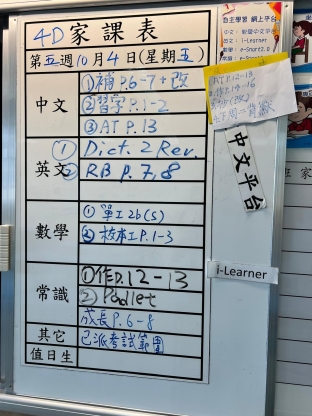 4D家課表
第五週10月4日(星期五)
中文
①補P.6-7+改
②習字P.1-2
③AT P.13
英文
① Dict. 2 Rev.
② RB P.7,8
數學
①單工2b(S)
②校本工P.1-3
常識
①作P.12-13
②Padlet
成長P.6-8
其它
已派考試範圍
值日生
自主學習 網上平台
i-Learner
中文平台
i-Learner